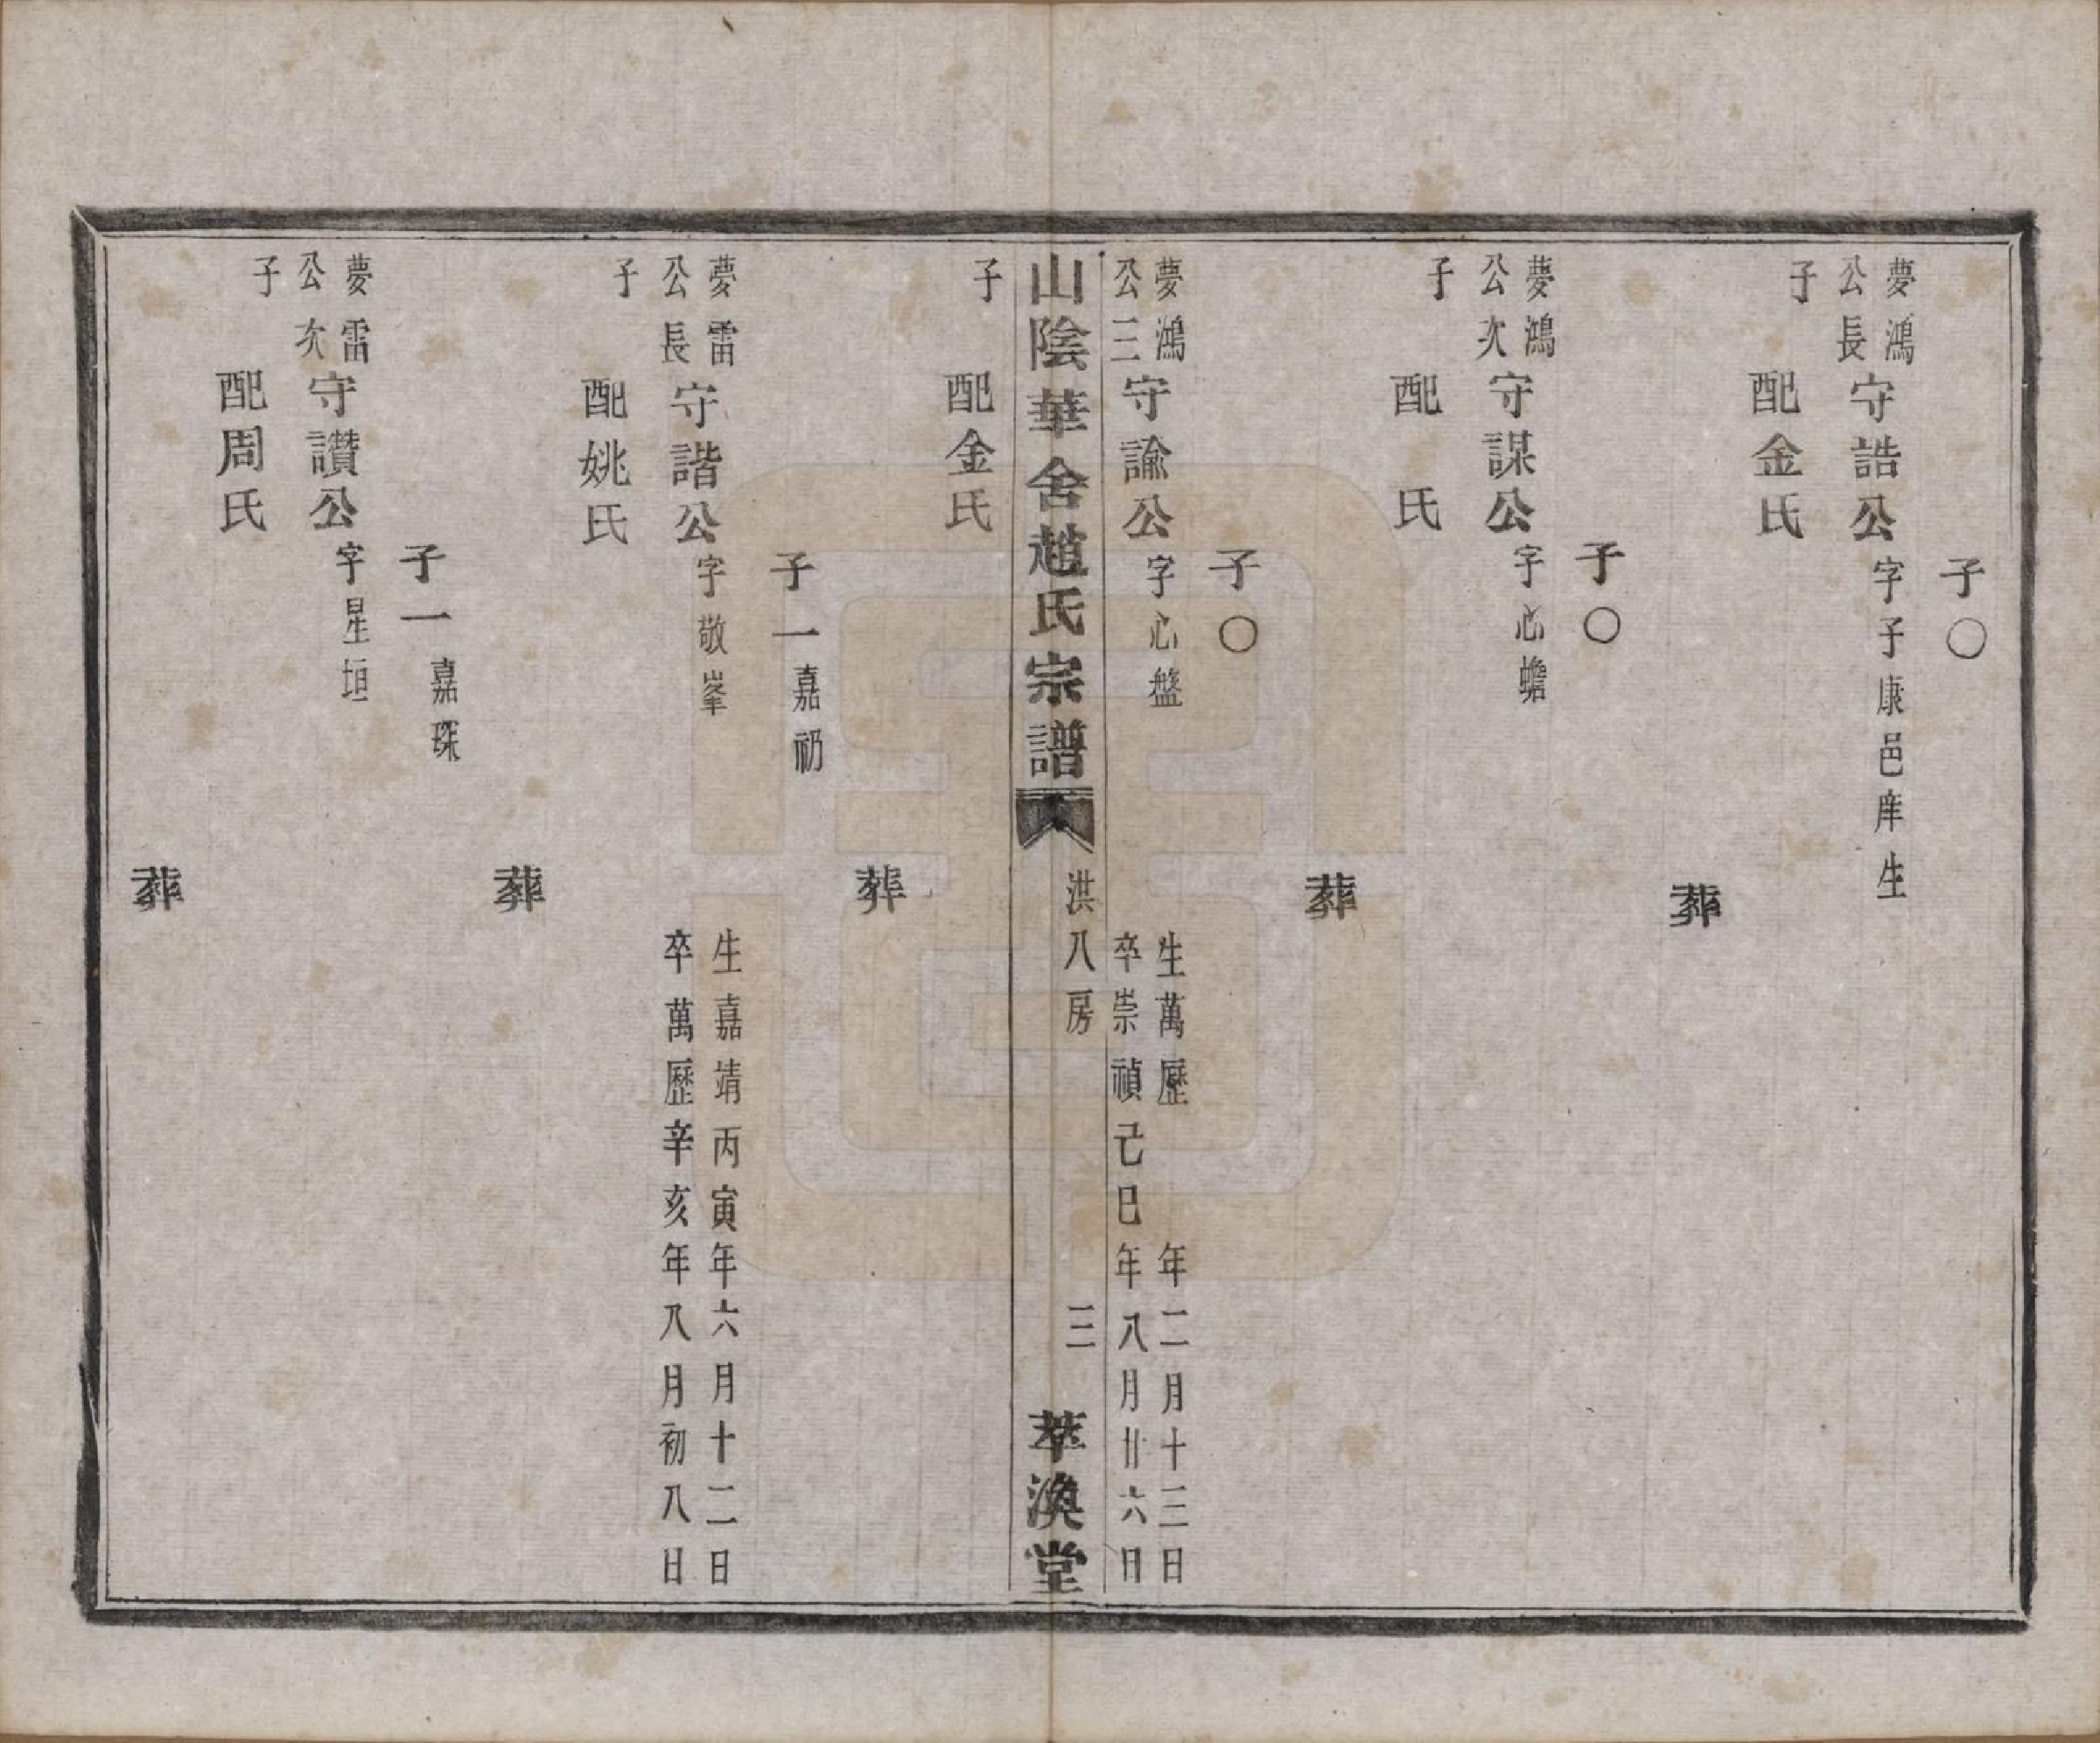 子〇
夢鴻
公長
子
守誥公
字子康邑庠生
配金氏
葬
子〇
夢鴻
公次
子
守謀公
字心蟾
配　氏
葬
子〇
夢鴻
公三
子
守諭公
字心盤
生萬歷　　年二月十三日
卒崇禎己巳年八月廿六日
山陰華舍趙氏宗譜
洪八房
三
萃渙堂
配金氏
葬
子一
嘉礽
夢雷
公長
子
守諧公
字敬峯
生嘉靖丙寅年六月十二日
卒萬歷辛亥年八月初八日
配姚氏
葬
子一
嘉琛
夢雷
公次
子
守讚公
字星垣
配周氏
葬